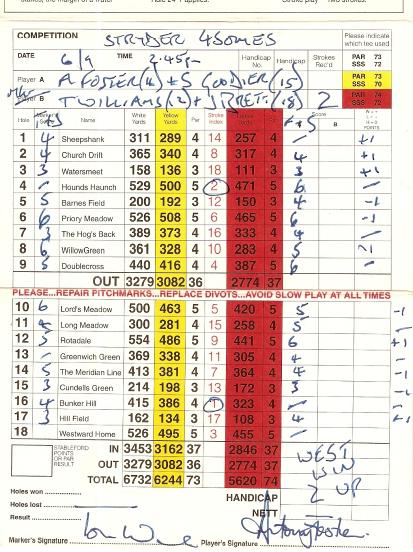 COMPETITION STRYDER 4SOMES Please indicate which tee used
DATE 6/9 TIME 2.45pm Handicap No. Handicap Strokes Rec'd PAR 73 SSS 72
Player A A FOSTER(4) + S GOODIER(15) PAR 73 SSS 70
Player B T WILLIAMS(2) + J BRETT(18) 2 PAR 74 SSS 72
Hole Marker's Score Name White Yards Yellow Yards Par Stroke Index Score A B W = + L = - H = 0 POINTS
1 4 Sheepshank 311 289 4 14 257 4 – +1
2 4 Church Drift 365 340 4 8 317 4 4 +1
3 3 Watersmeet 158 136 3 18 111 3 4 +1
4 – Hounds Haunch 529 500 5 2 471 5 6 –
5 5 Barnes Field 200 192 3 12 150 3 4 -1
6 6 Priory Meadow 526 508 5 6 465 5 6 –
7 3 The Hog's Back 389 373 4 16 333 4 4 –
8 6 WillowGreen 361 328 4 10 283 4 5 -1
9 5 Doublecross 440 416 4 4 387 5 6 –
OUT 3279 3082 36 2774 37
PLEASE...REPAIR PITCHMARKS...REPLACE DIVOTS...AVOID SLOW PLAY AT ALL TIMES
10 6 Lord's Meadow 500 463 5 5 420 5 5 -1
11 4 Long Meadow 300 281 4 15 258 4 5 –
12 5 Rotadale 554 486 5 9 441 5 6 +1
13 – Greenwich Green 369 338 4 11 305 4 4 –
14 5 The Meridian Line 413 381 4 7 364 4 4 -1
15 3 Cundells Green 214 198 3 13 172 3 3 –
16 4 Bunker Hill 415 386 4 1 323 4 –
17 3 Hill Field 162 134 3 17 108 3 4 +1
18 Westward Home 526 495 5 3 455 5 –
STABLEFORD POINTS OR PAR RESULT IN 3453 3162 37 2846 37 WEST WIN
OUT 3279 3082 36 2774 37 2 UP
TOTAL 6732 6244 73 5620 74
Holes won HANDICAP
Holes lost NETT
Result
Marker's Signature Player's Signature